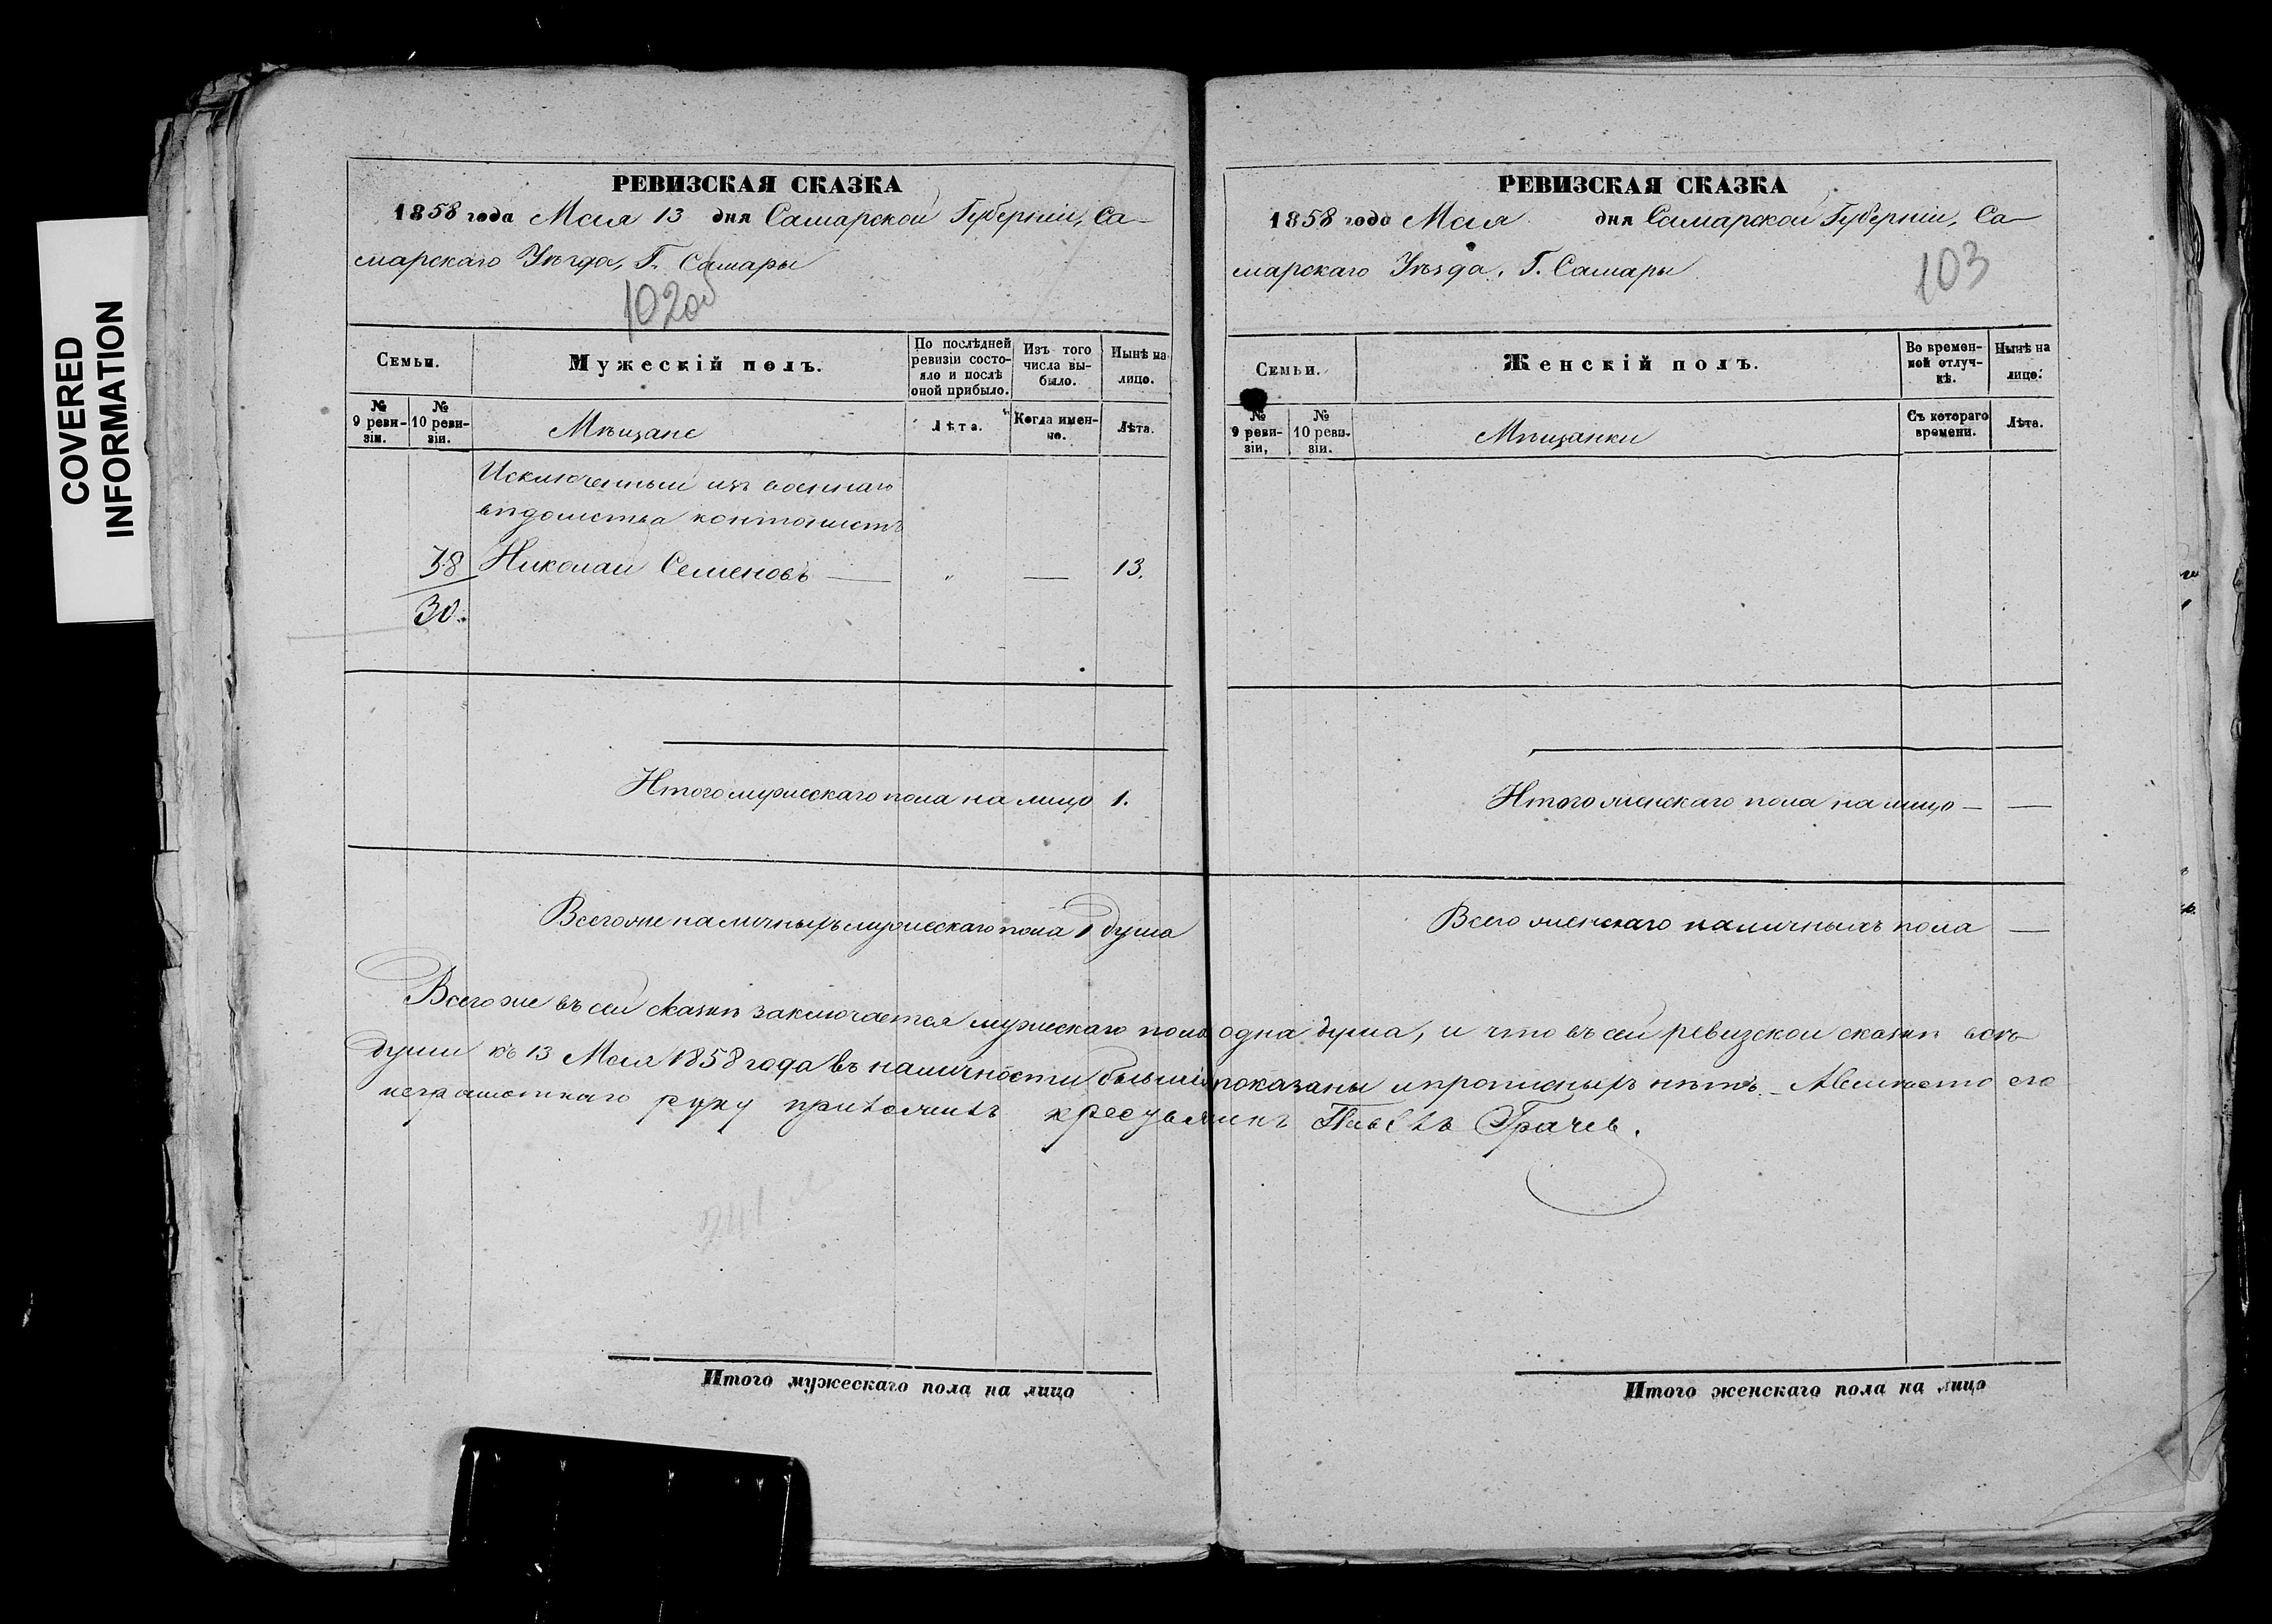 COVERED
INFORMATION
РЕВИЗСКАЯ СКАЗКА
1858 года Мая 13 дня Самарской Губерніи, Са-
марскаго Уѣзда, Г. Самары
102об
Семьи.
Мужескій полъ.
По послѣдней
ревизіи состо-
яло и послѣ
оной прибыло.
Изъ того
числа вы-
было.
Нынѣ на
лицо.
№
9 реви-
зіи.
№
10 реви-
зіи.
Мѣщане
Лѣта.
Когда имен-
но.
Лѣта.
Исключенный изъ военнаго
вѣдомства кантонистъ
38 Николай Семеновъ — " — 13.
30.
Итого мужескаго пола на лицо 1.
Всего же наличныхъ мужескаго пола 1 душа
РЕВИЗСКАЯ СКАЗКА
1858 года Мая дня Самарской Губерніи, Са-
марскаго Уѣзда, Г. Самары
103
Семьи.
Женскій полъ.
Во времен-
ной отлуч-
кѣ.
Нынѣ на
лицо.
№
9 реви-
зіи,
№
10 реви-
зіи.
Мѣщанки
Съ котораго
времени.
Лѣта.
Итого женскаго пола на лицо — —
Всего женскаго наличныхъ пола —
Всего же въ сей сказкѣ заключается мужескаго пола одна душа, и что въ сей ревизской сказкѣ всѣ
души къ 13 Мая 1858 года въ наличности бывшія показаны и прописныхъ нѣтъ. А вместо его
неграмотнаго руку приложилъ кресьянинъ Грачев.
241
Итого мужескаго пола на лицо
Итого женскаго пола на лицо